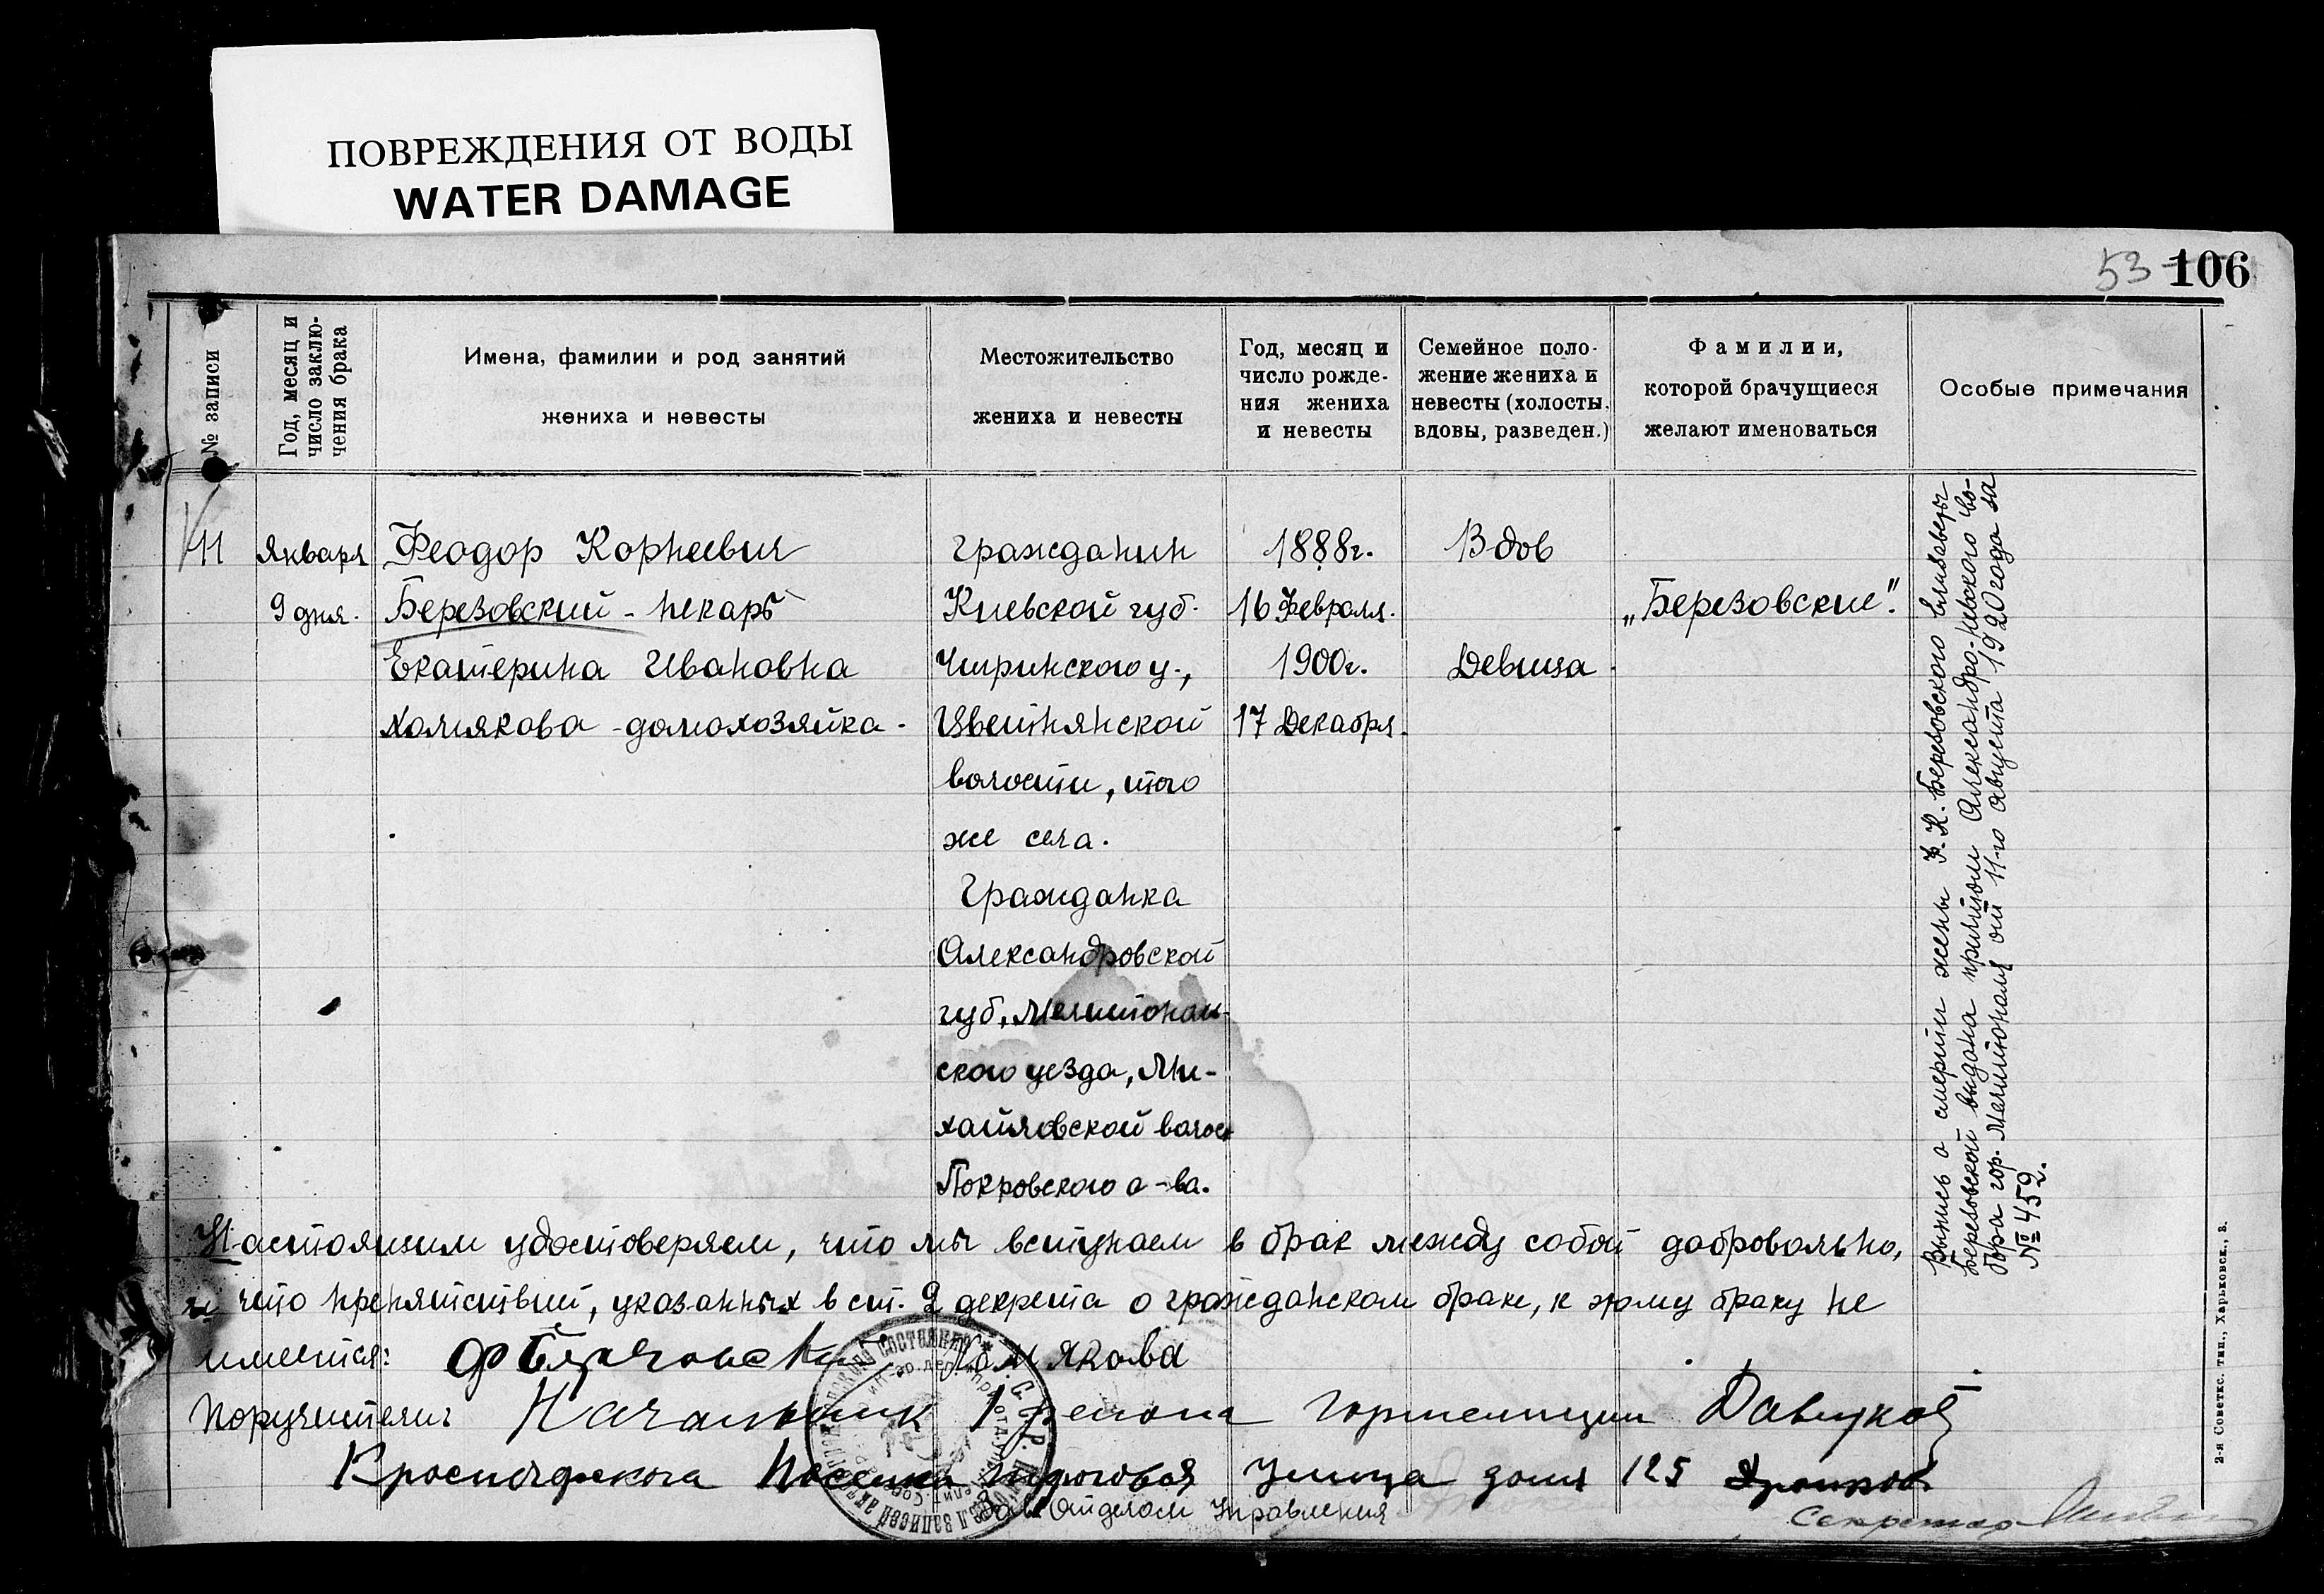 ПОВРЕЖДЕНИЯ ОТ ВОДЫ
WATER DAMAGE
53 106
№ записи
Год, месяц и
число заклю-
чения брака
Имена, фамилии и род занятий
жениха и невесты
Местожительство
жениха и невесты
Год, месяц и
число рожде-
ния жениха
и невесты
Семейное поло-
жение жениха и
невесты (холосты,
вдовы, разведен.)
Фамилии,
которой брачущиеся
желают именоваться
Особые примечания
11
Января
9 дня.
Феодор Корнеевич
Березовский - пекарь
Екатерина Ивановна
Хомякова - домохозяйка.
Гражданин
Киевской губ.
Чигринского у.,
Цветнянской
волости, того
же села.
Гражданка
Александровской
губ., Мелитополь-
ского уезда, Ми-
хайловской волос
Покровского о-ва.
1888г.
16 Февраля.
1900г.
17 Декабря.
Вдов
Девица
„Березовские".
Выпись о смерти жены Ф. К. Березовского Елизаветы
Березовской выдана причтом Александро-Невского со-
бора гор. Мелитополя от 11-го августа 1920 года за
№ 459.
Настоящим удостоверяем, что мы вступаем в брак между собой добровольно,
и что препятствий, указанных в ст. 2 декрета о гражданском браке, к этому браку не
имеется: Хомякова
Поручители: Начальник 1 района гормилиции
поселка улица дом 125
Зав. Отделом Управления
Секретарь
2-я Советск. тип., Харьковск., 3.